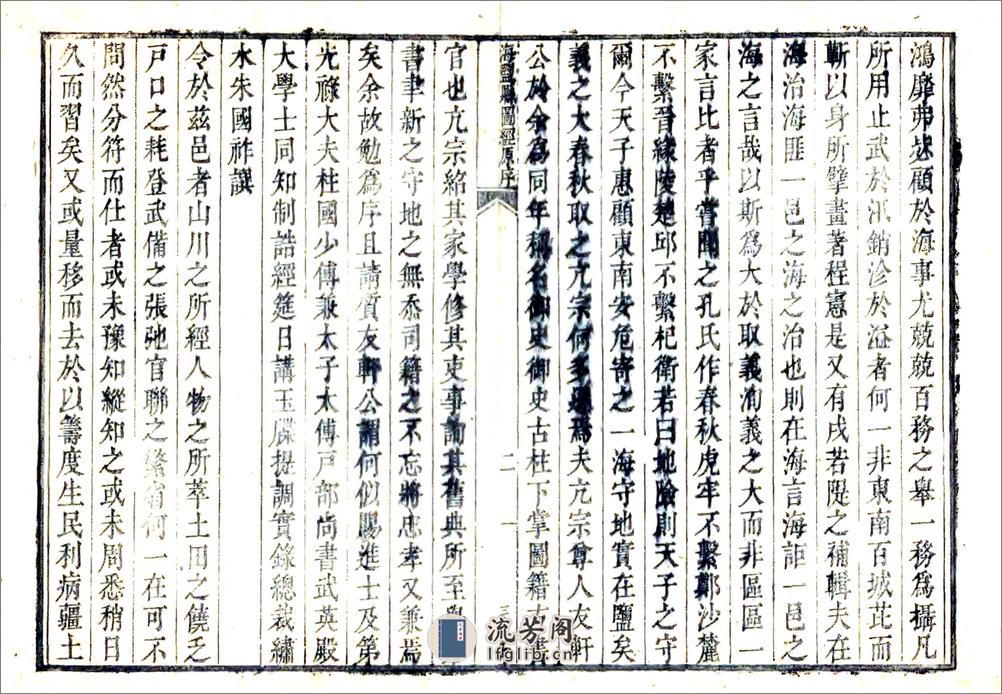 鴻靡弗逑顧於海事尤兢兢百務之舉一務為攝凡
所用止武於汛銷沴於溢者何一非東南百城芘而
斬以身所擘畫著程憲是又有戌若隄之補輯夫在
海治海匪一邑之海之治也則在海言海詎一邑之
海之言哉以斯爲大於取義洵義之大而非區區一
家言比者乎嘗聞之孔氏作春秋虎牢不繫鄭沙麓
不繫晉緣陵楚邱不繫杞衛若曰地險則天子之守
爾今天子惠顧東南安危寄之一海守地實在鹽矣
義之大春秋取之亢宗何多遜焉夫亢宗尊人友軒
公於余爲同年稱名御史御史古柱下掌圖籍
海鹽縣圖經原序
二
三
官也亢宗紹其家學修其吏事論其舊典所至
書聿新之守地之無忝司籍之不忘將忠孝又兼焉
矣余故勉爲序且請質友軒公謂何似賜進士及第
光祿大夫柱國少傅兼太子太傅戸部尚書武英殿
大學士同知制誥經筵日講玉牒提調實錄總裁繡
水朱國祚譔
令於茲邑者山川之所經人物之所萃土田之饒乏
戸口之耗登武備之張弛官聯之繁省何一在可不
問然分符而仕者或未豫知縱知之或未周悉稍日
久而習矣又或量移而去於以籌度生民利病疆土
流芳阁
lfglib.cn